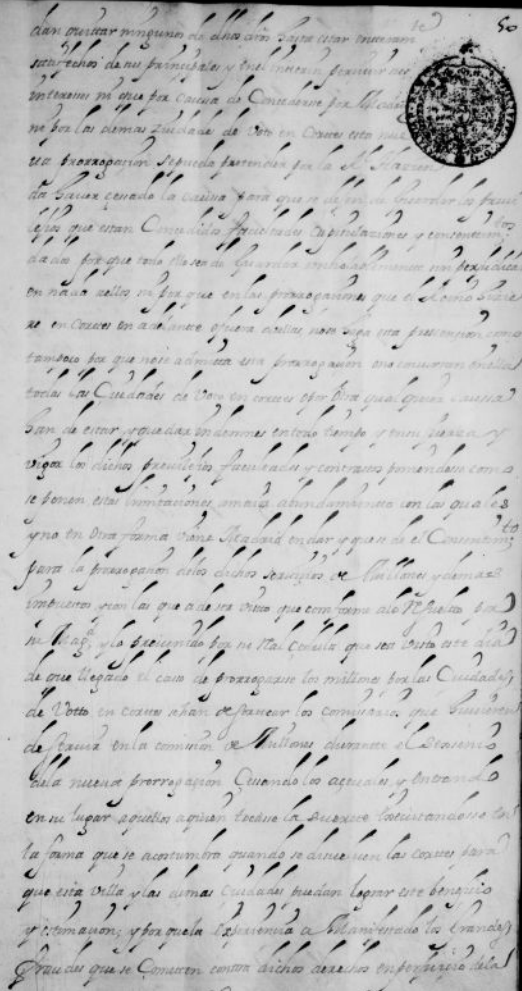 50
dan quittar ningunos de dhos dros hasta estar enteram te
satisfechos de sus principales y
intereses ni que por causa de Concederse por Madrid
ni por las demas Ziudades de Voto en Cortes esta nue
va prorrogazion sepueda pretender por la Rl Hazien
da haver çesado la causa para que se de guardar los previ
lejios que estan Concedidos facultades Capitulaziones y consentim tos
dados por que todo ello se ha de guardar inviolablemente sin perjudicar
en nada a ellos ni por que en las prorrogaziones que el Reino hiziere
re en Cortes en adelante o fuera dellas no se haga esta prevenzion como
tampoco por que no se admitta esta prorrogazion o no convengan en ella
todas las Ciudades de Voto en cortes o por Otra qual quiera Caussa
han de estar y quedar indemnes en todo tiempo y en su fuerza y
vigor los dichos previlejios facultades y contratos poniendose como
se ponen estas limitaziones a maior abundamiento con las quales
y no en Otra forma viene Madrid en dar y que se de el Consentim to
para la prorrogazion delos dichos serviçios de Millones y demas
impuestos y con las que a de ser visto que conforme alo Resuelto por
su Magd y lo prevenido por su Real Çedula que sea visto este dia
de que llegado el caso de prorrogarse los millones por las Ciudades
de Votto en cortes se han de sortear los comisarios que huvieren
de servir en la comision de Millones durante el Sexenio
dela nueva prorrogazion Cesando los actuales y entrando
en su lugar aquellos aquien tocase la Suerte Executandosse en
la forma que se acostumbra quando se disuelven las cortes para
que esta Villa y las demas Ciudades puedan lograr este benefiçio
y estimazion; y por que la Experiencia a Manifestado los Grandes
fraudes que se Cometen contra dichos derechos en perjuizio dela